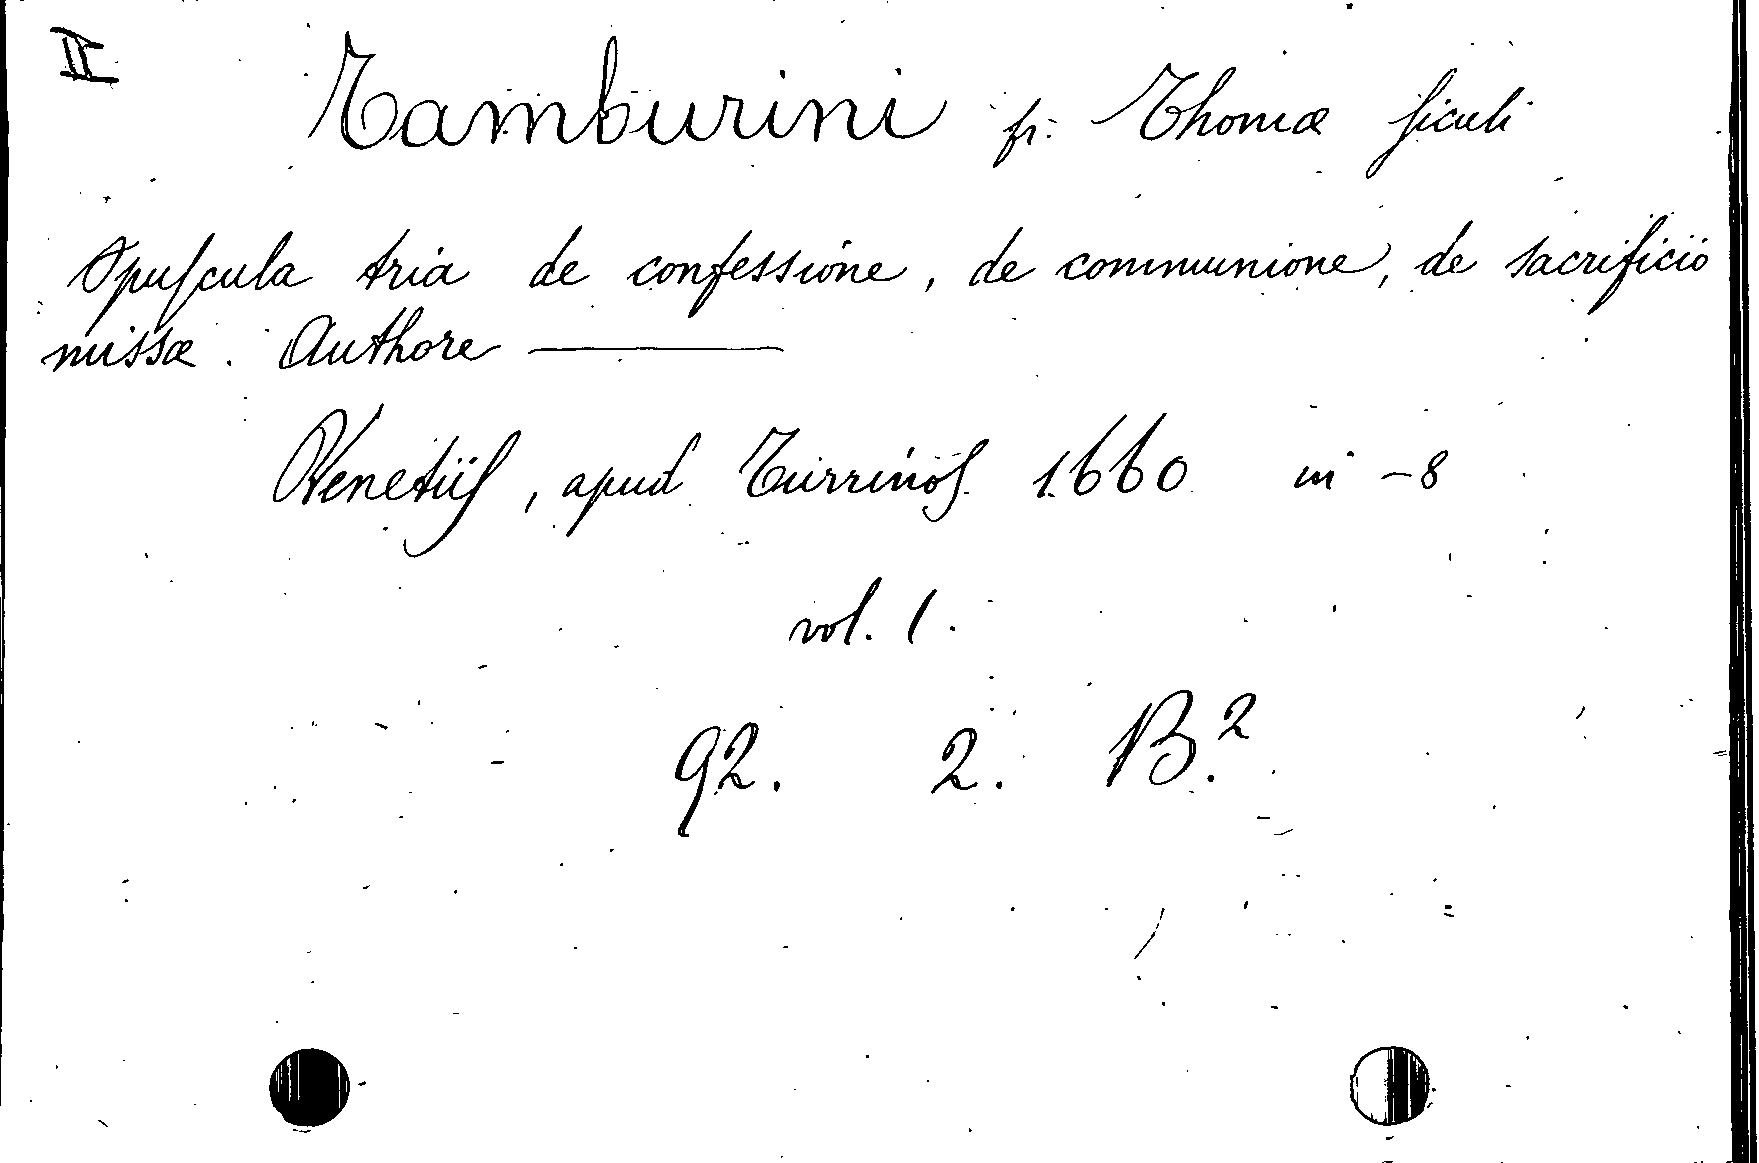 II
Tamburini fr: Thomæ ſiculi
Opuſcula tria de confessione, de communione, de sacrificio
missæ. Authore ———
Venetiiſ, apud Turrinoſ 1660 in -8
vol. 1.
92. 2. B.²